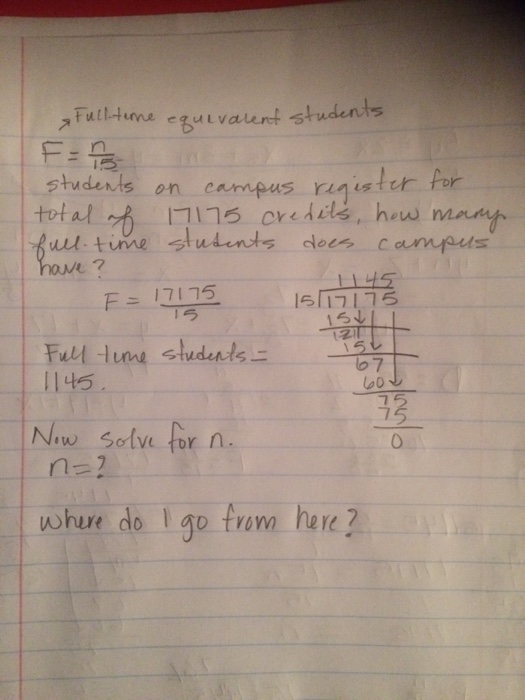 Full-time equivalent students
F = n/15
students on campus register for
total of 17175 credits, how many
full-time students does campus
have?
F = 17175/15
Full time students =
1145.
1145
15 17175
15
21
15
67
60
75
75
0
Now solve for n.
n=?
where do I go from here?